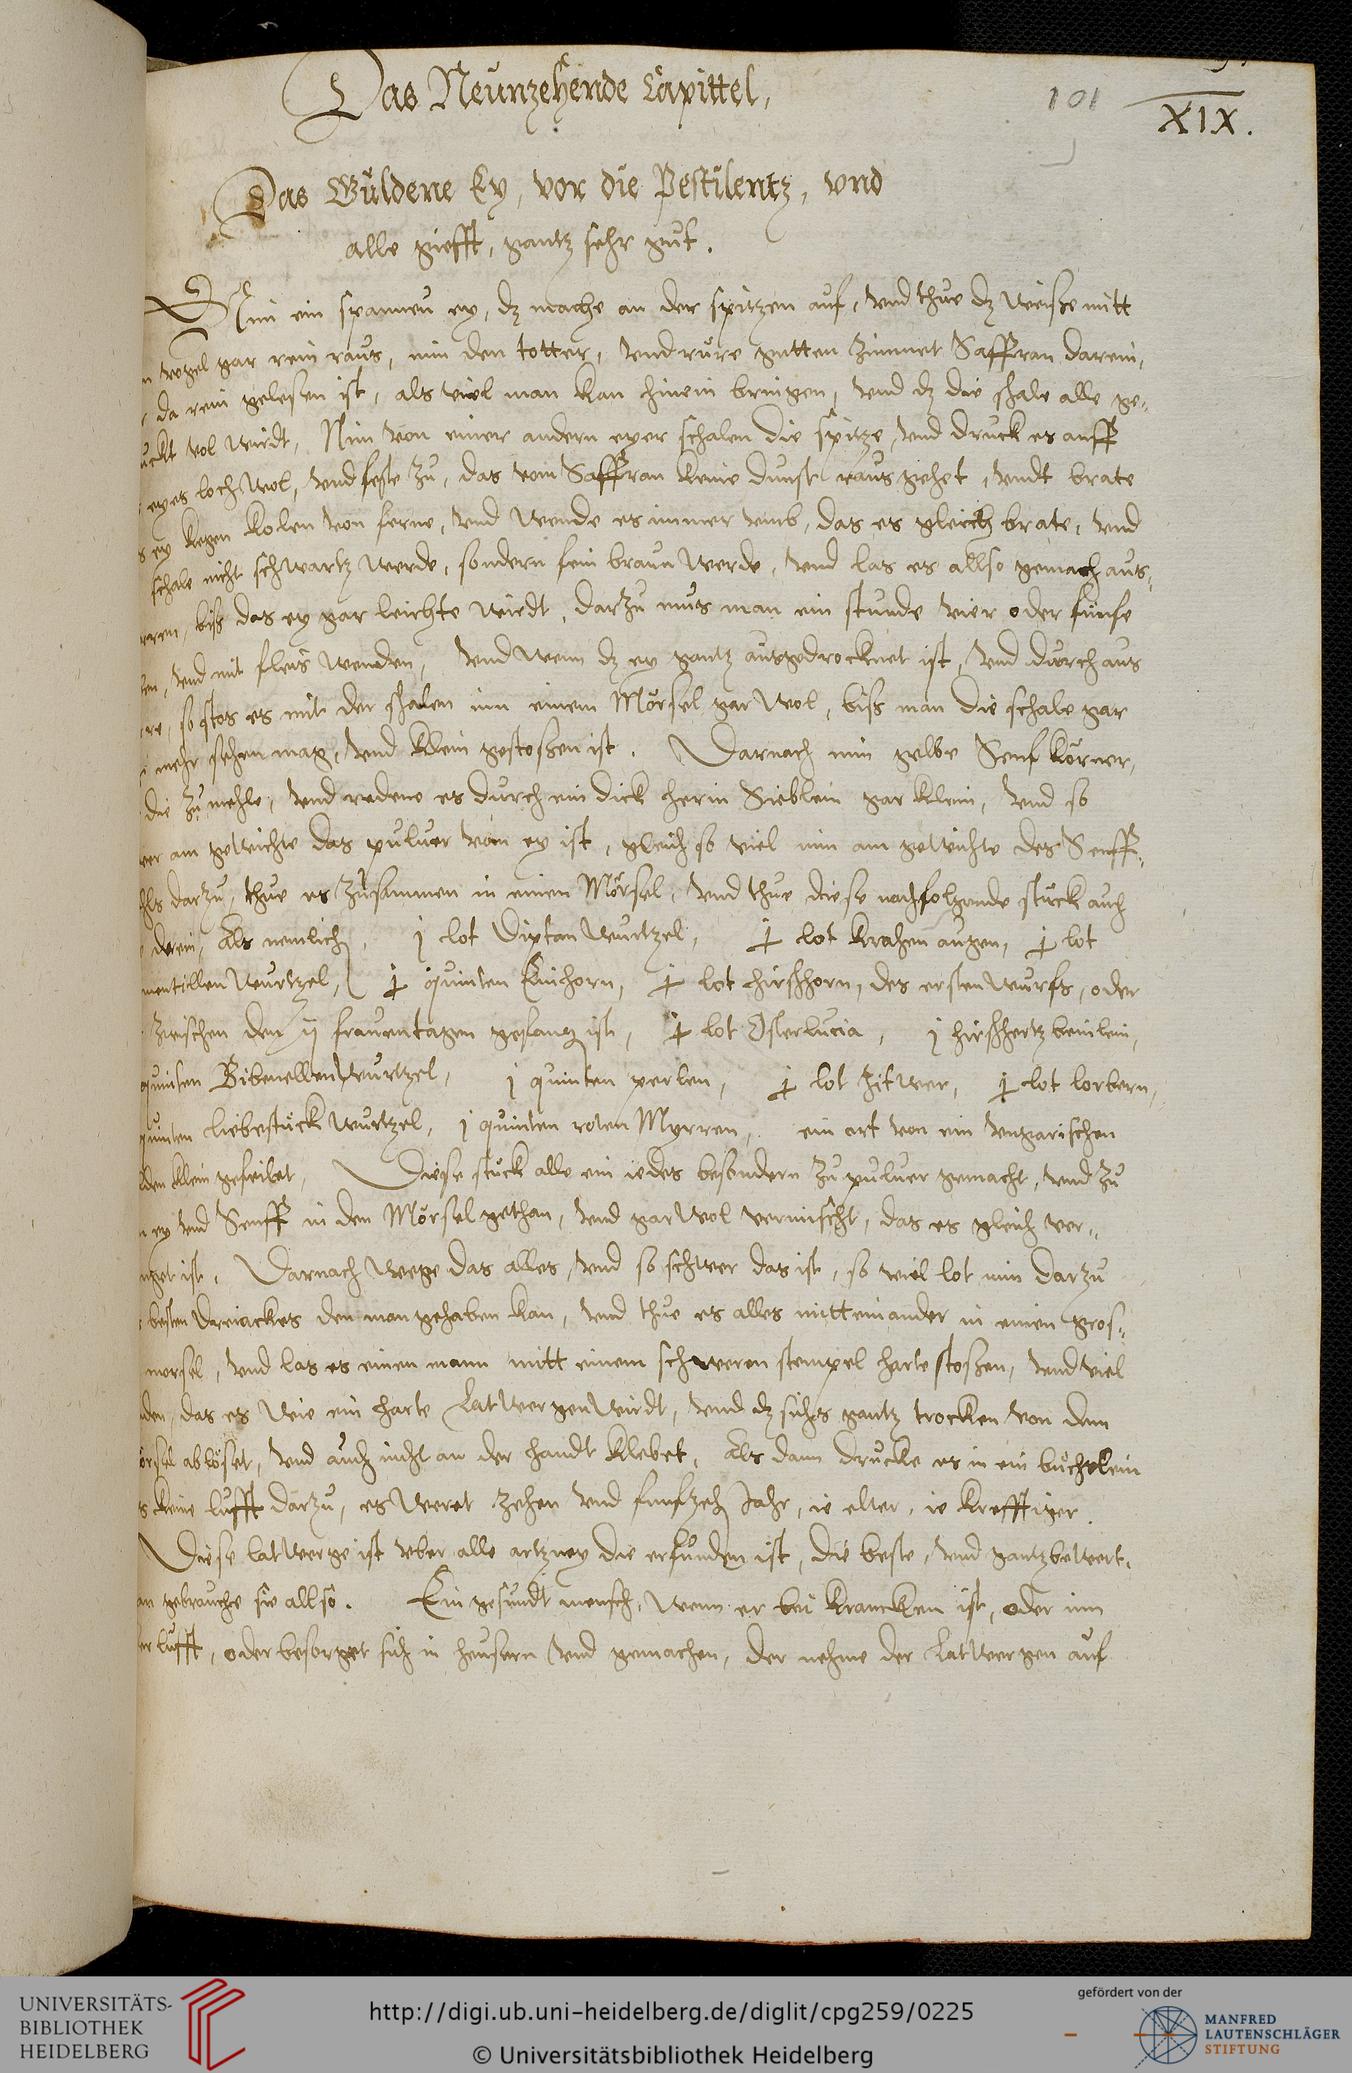 Das Neunzehende Capittel,
101
XIX.
Das Güldene Ey, vor die Pestilentz, vnd
alle giefft, gantz sehr gut.
Nim ein spanneu ey, dz mache an der spitzen auf, vnd thue dz weisse mitt
vogel gar rein raus, nim den totter, vnd rure gutten Zimmet Saffran darein,
da rein gelesen ist, als viel man kan hinein bringen, vnd dz die shale alle ge-
uckt vol wirdt, Nim von einer andern eyer schalen die spitze, vnd druck es auff
eyes loch wol, vnd feste zu, das vom Saffran keine dunst raus gehet, vndt brate
ey kegen kolen von ferne, vnd wende es immer vmb, das es gleich brate, vnd
schale nicht schwartz werde, sondern fein braun werde, vnd las es allso gemach aus-
rren, biß das ey gar leichte wirdt, darzu mus man ein stunde vier oder funfe
en, vnd mit fleis wenden, vnd wenn dz ey gantz ausgedrocknet ist, vnd durchaus
re, so stos es mit der shalen inn einem Mörsel gar wol, biß man die schale gar
mehr sehen mag, vnd klein gestossen ist. Darnach nim gelbe Senf körner,
die zu mehle, vnd redene es durch ein dick herin Sieblein gar klein, vnd so
er am gewichte das puluer vom ey ist, gleich so viel nim am gewichte des Senff-
hls darzu, thue es zusammen in einen Mörsel, vnd thue diese nachfolgende stuck auch
drein, Als nemlich, j lot Diptan wurtzel, lot krahen augen, lot
mentillen wurtzel, quinten Einhorn, lot hirshhorn, des ersten wurfs, oder
zwischen den ij frauentagen gefang ist, lot Osterlucia, j hirshhertz beinlein,
quinten Bibenellen wurtzel, j quinten perlen, lot Zitwer, lot lorbern,
quinten liebestuck wurtzel, j quinten roten Myrren, ein ort von ein vngarischen
lden klein gefeilet, Diese stuck alle ein iedes besondern zu puluer gemacht, vnd zu
ey vnd Senff in den Mörsel gethan, vnd gar wol vermischt, das es gleich ver-
nget ist, Darnach wege das alles, vnd so schwer das ist, so viel lot nim darzu
besten Driackes den man gehaben kan, vnd thue es alles mitteinander in einen gros-
morsel, vnd las es einen mann mitt einem schweren stempel harte stossen, vnd viel
den, das es wie ein harte Latwergen wirdt, vnd dz sichs gantz trocken von dem
örsel ablöset, vnd auch nicht an der handt klebet, Als dann drucke es in ein buchslein
s keine lufft darzu, es weret zehen vnd funfzeh Jahr, ie elter, ie krefftiger.
Diese latwerge ist vber alle artzney die erfunden ist, die beste, vnd gantz bewert,
an gebrauche sie allso. Ein gesundt mensch, wenn er bei krancken ist, oder inn
er lufft, oder besorget sich in heusern vnd gemachen, der nehme der Latwergen auf
UNIVERSITÄTS-
BIBLIOTHEK
HEIDELBERG
http://digi.ub.uni-heidelberg.de/diglit/cpg259/0225
© Universitätsbibliothek Heidelberg
gefördert von der
MANFRED
LAUTENSCHLÄGER
STIFTUNG